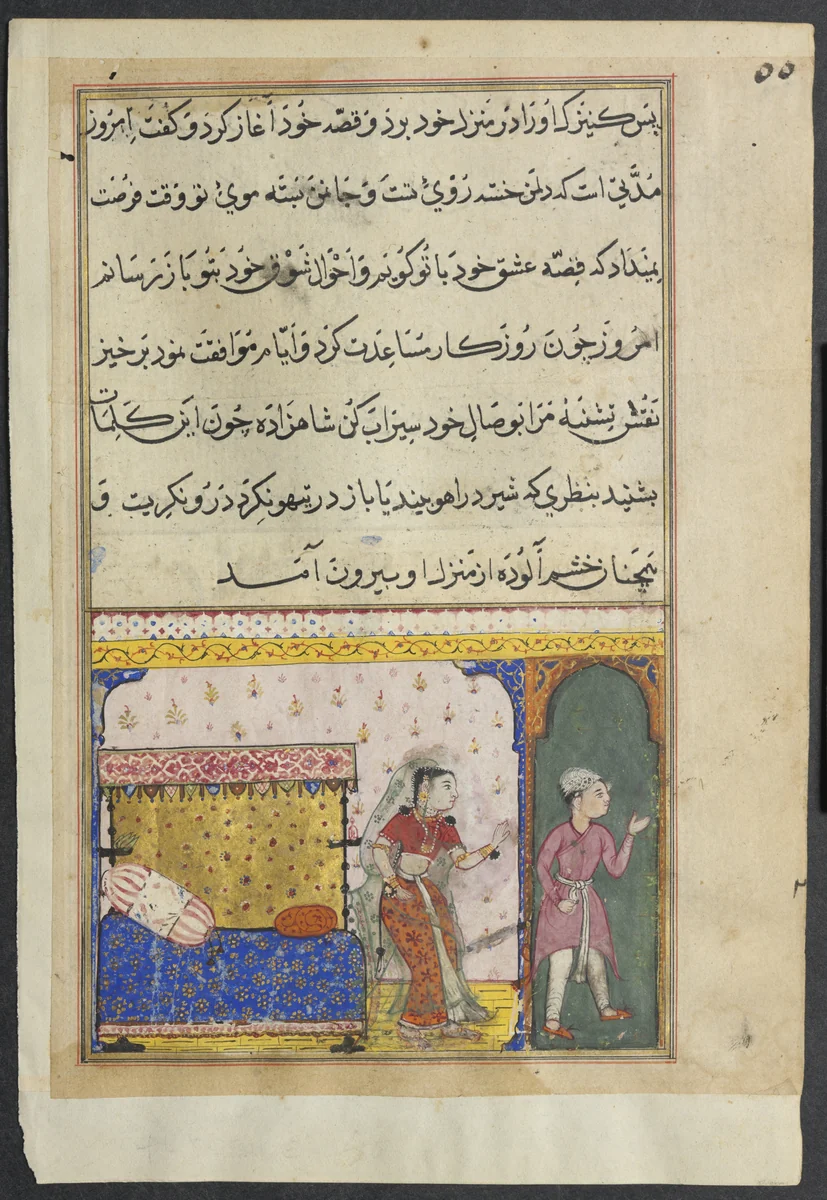 ۵۵
پس کنیزک او را در منزل خود برد و قصه خود آغاز کرد و گفت امروز
مدتی است که دل من خسته روی تست و جان من بسته موی تو وقت فرصت
نمیداد که قصه عشق خود با تو گویم و احوال شوق خود بتو باز رسانم
امروز چون روزگار مساعدت کرد و ایام موافقت نمود برخیز
نفس تشنه مرا بوصال خود سیراب کن شاهزاده چون این کلمات
بشنید بنظری که شیر در آهو بیند یا باز در تیهو نگرد درو نگریست و
همچنان خشم آلوده از منزل او بیرون آمد